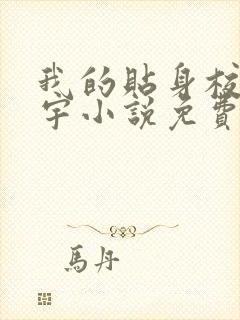 我的貼身校
宇小說免費
馬丹